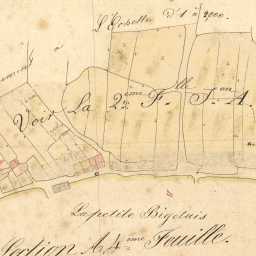 L'Echelle d'1 à 2500.
Voir La 2.ème F.lle S.on A.
La petite Bigotais
Section A 4.ème Feuille.